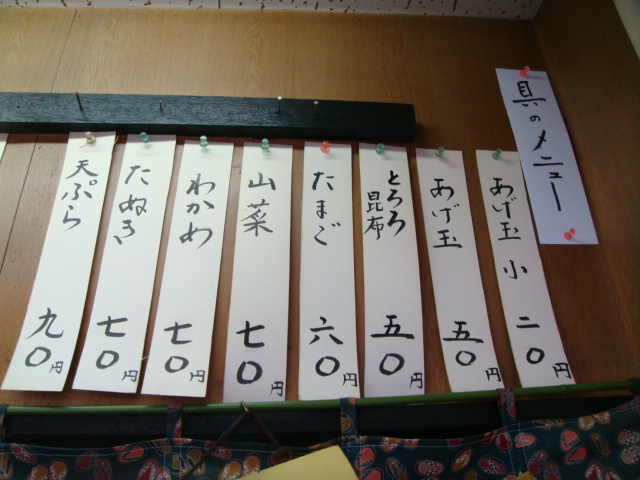 具のメニュー
あげ玉 小 二〇円
あげ玉 五〇円
とろろ昆布 五〇円
たまご 六〇円
山菜 七〇円
わかめ 七〇円
たぬき 七〇円
天ぷら 九〇円